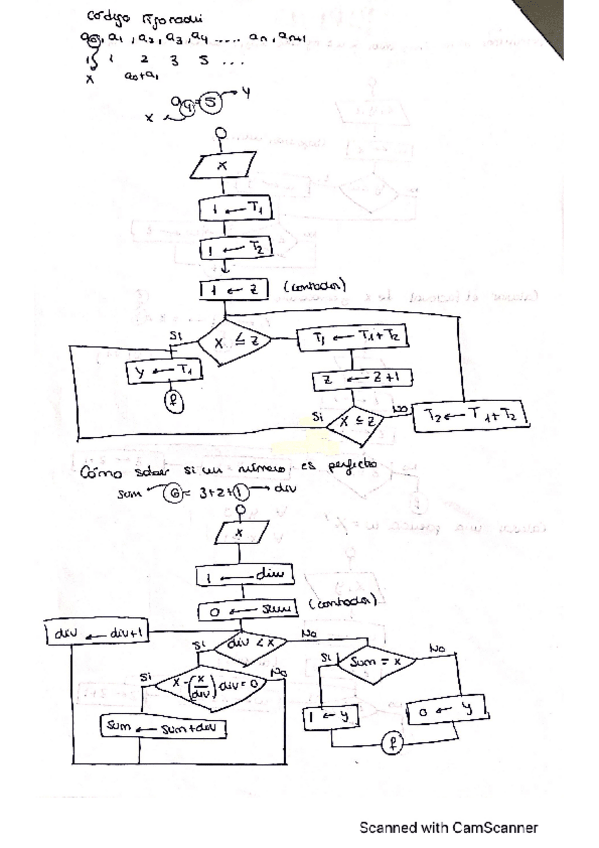 Código Fibonacci
a0, a1, a2, a3, a4 ..... an, an+1
1 1 2 3 5 ...
x a0+a1
a4 = 5 → y
x
x
1 ← T1
1 ← T2
1 ← Z (contador)
Si x ≤ Z T1 ← T1+T2
y ← T1 Z ← Z+1
f Si x ≤ Z No T2 ← T1+T2
Cómo saber si un número es perfecto
sum 6 = 3+2+1 → div
x
1 ← div
0 ← sum (contador)
div ← div+1 Si div < x No
Si x - (x/div) · div = 0 No Si sum = x No
sum ← sum+div 1 ← y 0 ← y
f
Scanned with CamScanner